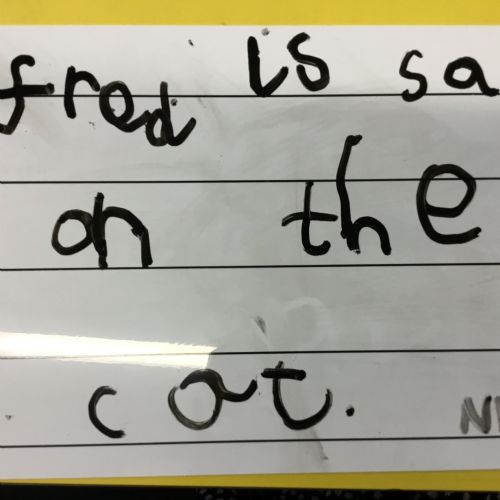 fred is sa
on the
cat.